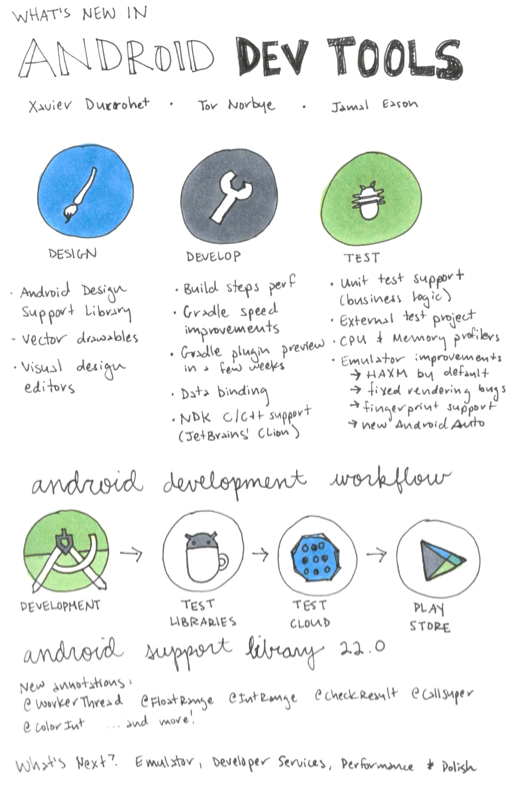 WHAT'S NEW IN
ANDROID DEV TOOLS
Xavier Ducrohet · Tor Norbye · Jamal Eason
DESIGN
· Android Design
Support Library
· Vector drawables
· Visual design
editors
DEVELOP
· Build steps perf
· Gradle speed
improvements
· Gradle plugin preview
in a few weeks
· Data binding
· NDK C/C++ support
(JetBrains' CLion)
TEST
· Unit test support
(business logic)
· External test project
· CPU & Memory profilers
· Emulator improvements
→ HAXM by default
→ fixed rendering bugs
→ fingerprint support
→ new Android Auto
android development workflow
DEVELOPMENT
→
TEST
LIBRARIES
→
TEST
CLOUD
→
PLAY
STORE
android support library 22.0
New annotations:
@WorkerThread @FloatRange @IntRange @CheckResult @CallSuper
@ColorInt ...and more!
What's Next? Emulator, Developer Services, Performance & Polish